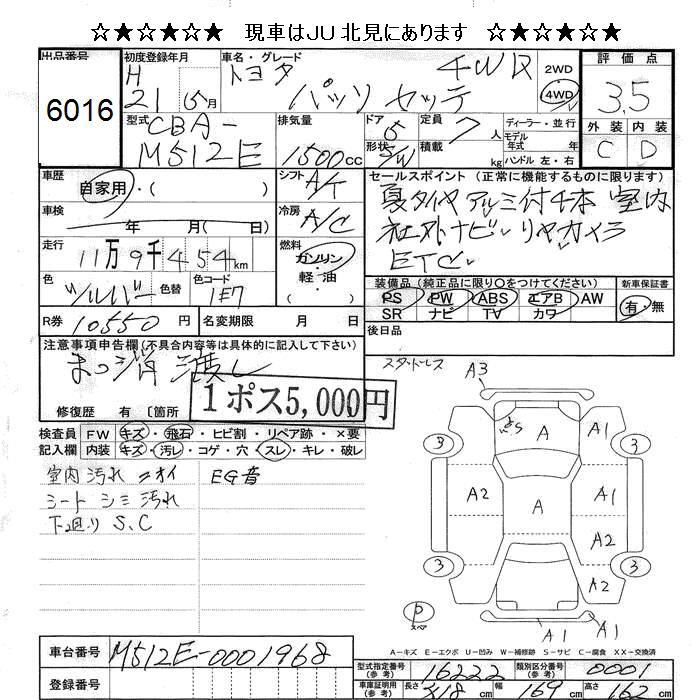 ☆★☆★☆★☆ 現車はJU北見にあります ☆★☆★☆★☆
出品番号
6016
初度登録年月
H
21 5月
車名・グレード
トヨタ 4WD
パッソ セッテ
2WD
4WD
評価点
3.5
外装 内装
C D
型式
CBA-
M512E
排気量
1500cc
ドア
5
形状
S/W
定員
7人
積載
kg
ディーラー・並行
モデル
年式 年
ハンドル 左・右
車歴
自家用・( )
シフト
A/T
セールスポイント (正常に機能するものに限ります)
夏タイヤ アルミ付4本 室内
社外ナビ リヤカメラ
ETC
車検
年 月( 日)
冷房
A/C
走行
11万9千454km
燃料
ガソリン
・
軽・油
色
シルバー
色替
色コード
1E7
装備品 (純正品に限り○をつけてください)
PS PW ABS エアB AW
SR ナビ TV カワ
新車保証書
有・無
R券 10550円
名変期限 月 日
後日品
注意事項申告欄(不具合内容等は具体的に記入して下さい)
まっ消渡し
修復歴 有 〔箇所
1ポス5,000円
検査員
記入欄
FW キズ・飛石・ヒビ割・リペア跡・×要
内装 キズ・汚レ・コゲ・穴・スレ・キレ・破レ
室内汚れ ニオイ EG音
シート シミ 汚れ
下廻り S、C
スタットレス
A3
S
A
A1
3
3
A2
A
A1
A2
3
3
A2
P
スペア
A1
A1
A-キズ E-エクボ U-凹み W-補修跡 S-サビ C-腐食 XX-交換済
車台番号
M512E-0001968
登録番号
型式指定番号
(参考)
16222
類別区分番号
(参考)
0001
車庫証明用
(参考)
長さ 418cm
幅 169cm
高さ 162cm